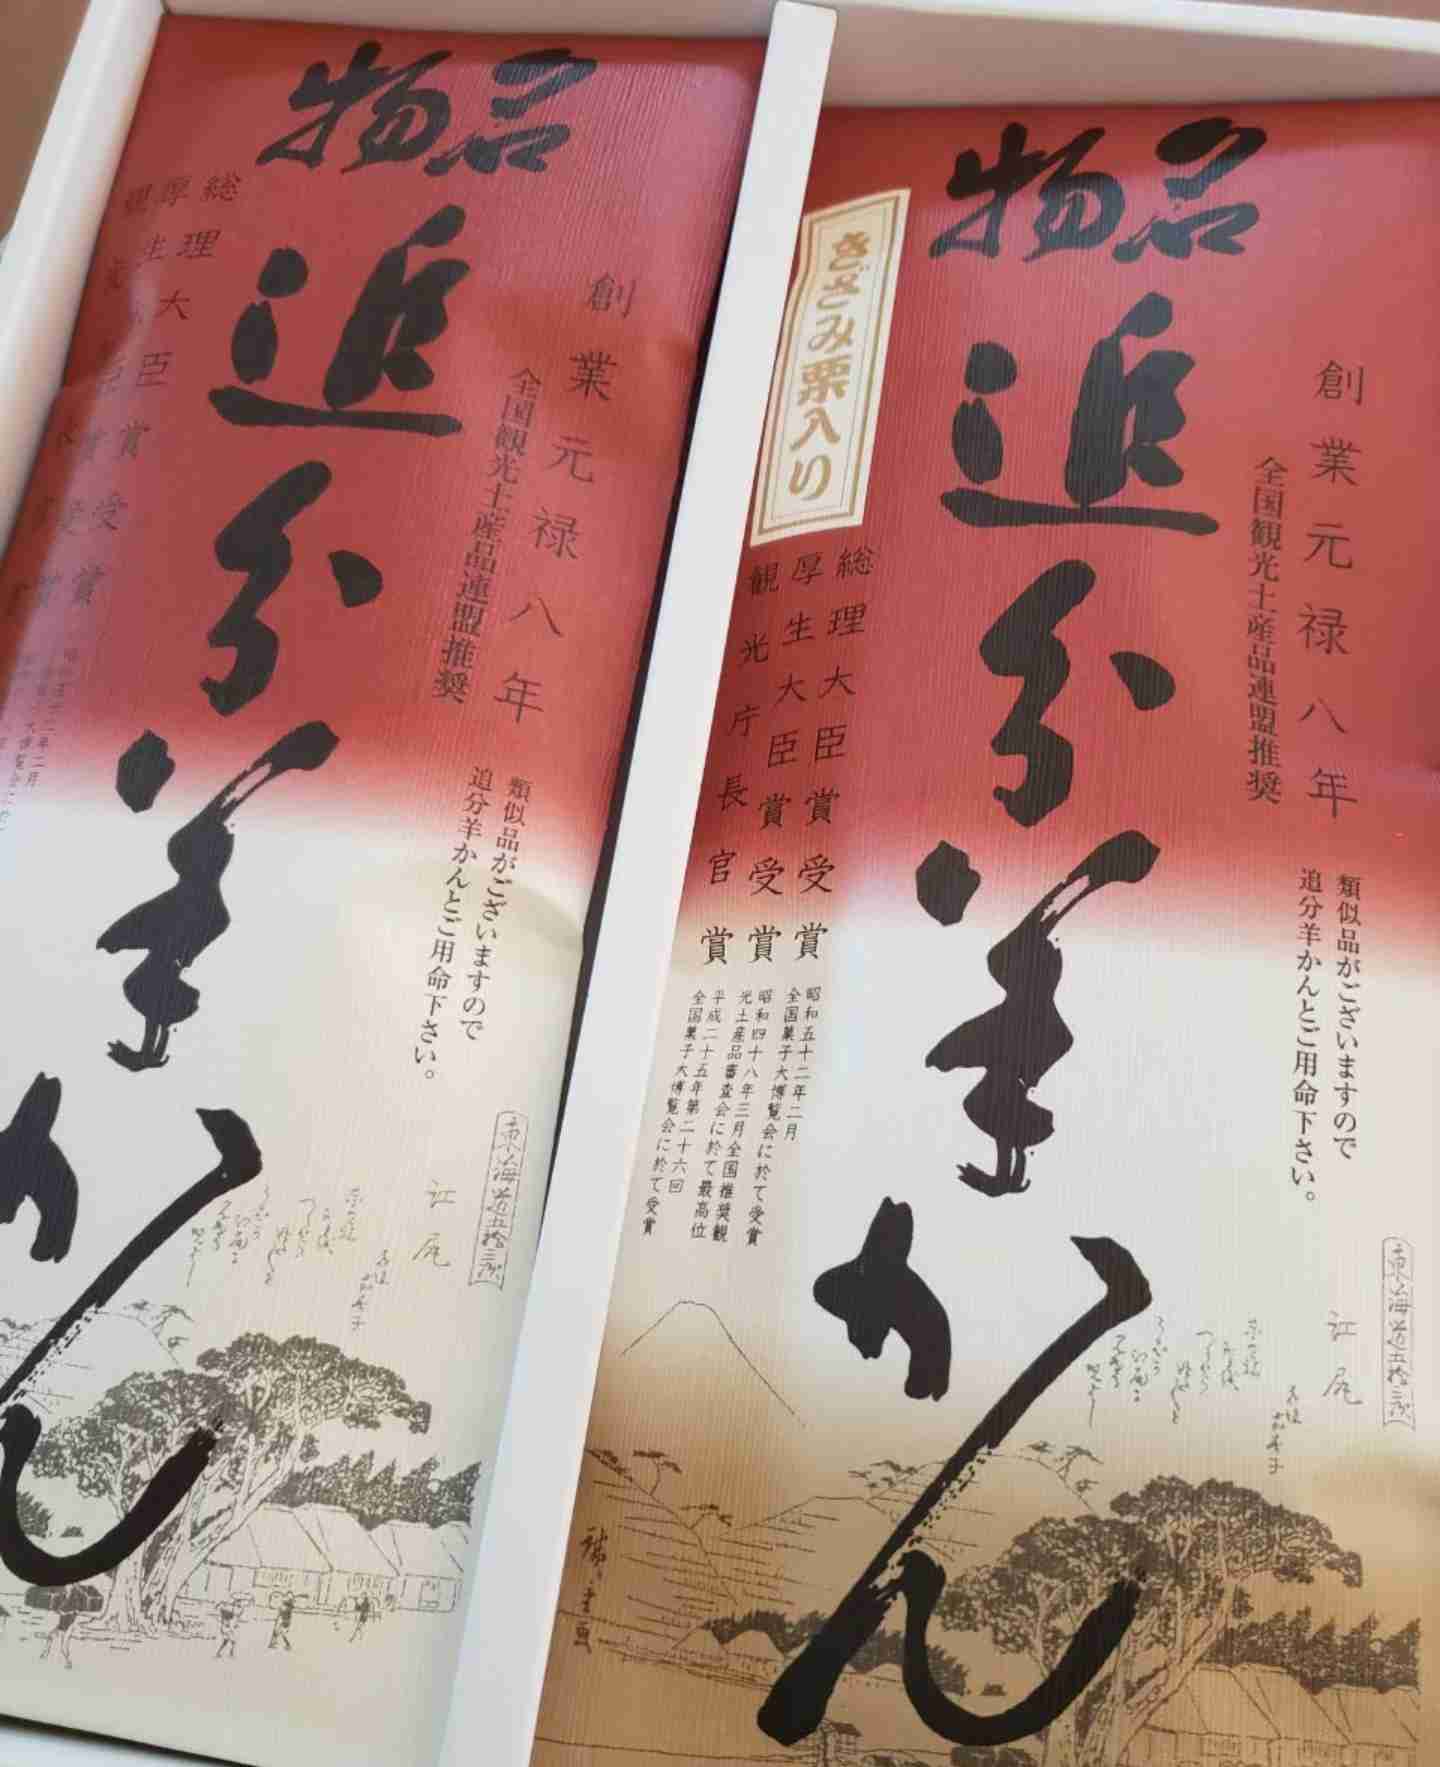 名物
追分羊かん
創業元禄八年
全国観光土産品連盟推奨
総理大臣賞受賞
厚生大臣賞受賞
類似品がございますので
追分羊かんとご用命下さい。
東海道五拾三次
江尻
名物
追分羊かん
きざみ栗入り
創業元禄八年
全国観光土産品連盟推奨
総理大臣賞受賞
厚生大臣賞受賞
観光庁長官賞
昭和五十二年二月
全国菓子大博覧会に於て受賞
昭和四十八年三月全国推奨観
光土産品審査会に於て最高位
平成二十五年第二十六回
全国菓子大博覧会に於て受賞
類似品がございますので
追分羊かんとご用命下さい。
東海道五拾三次
江尻